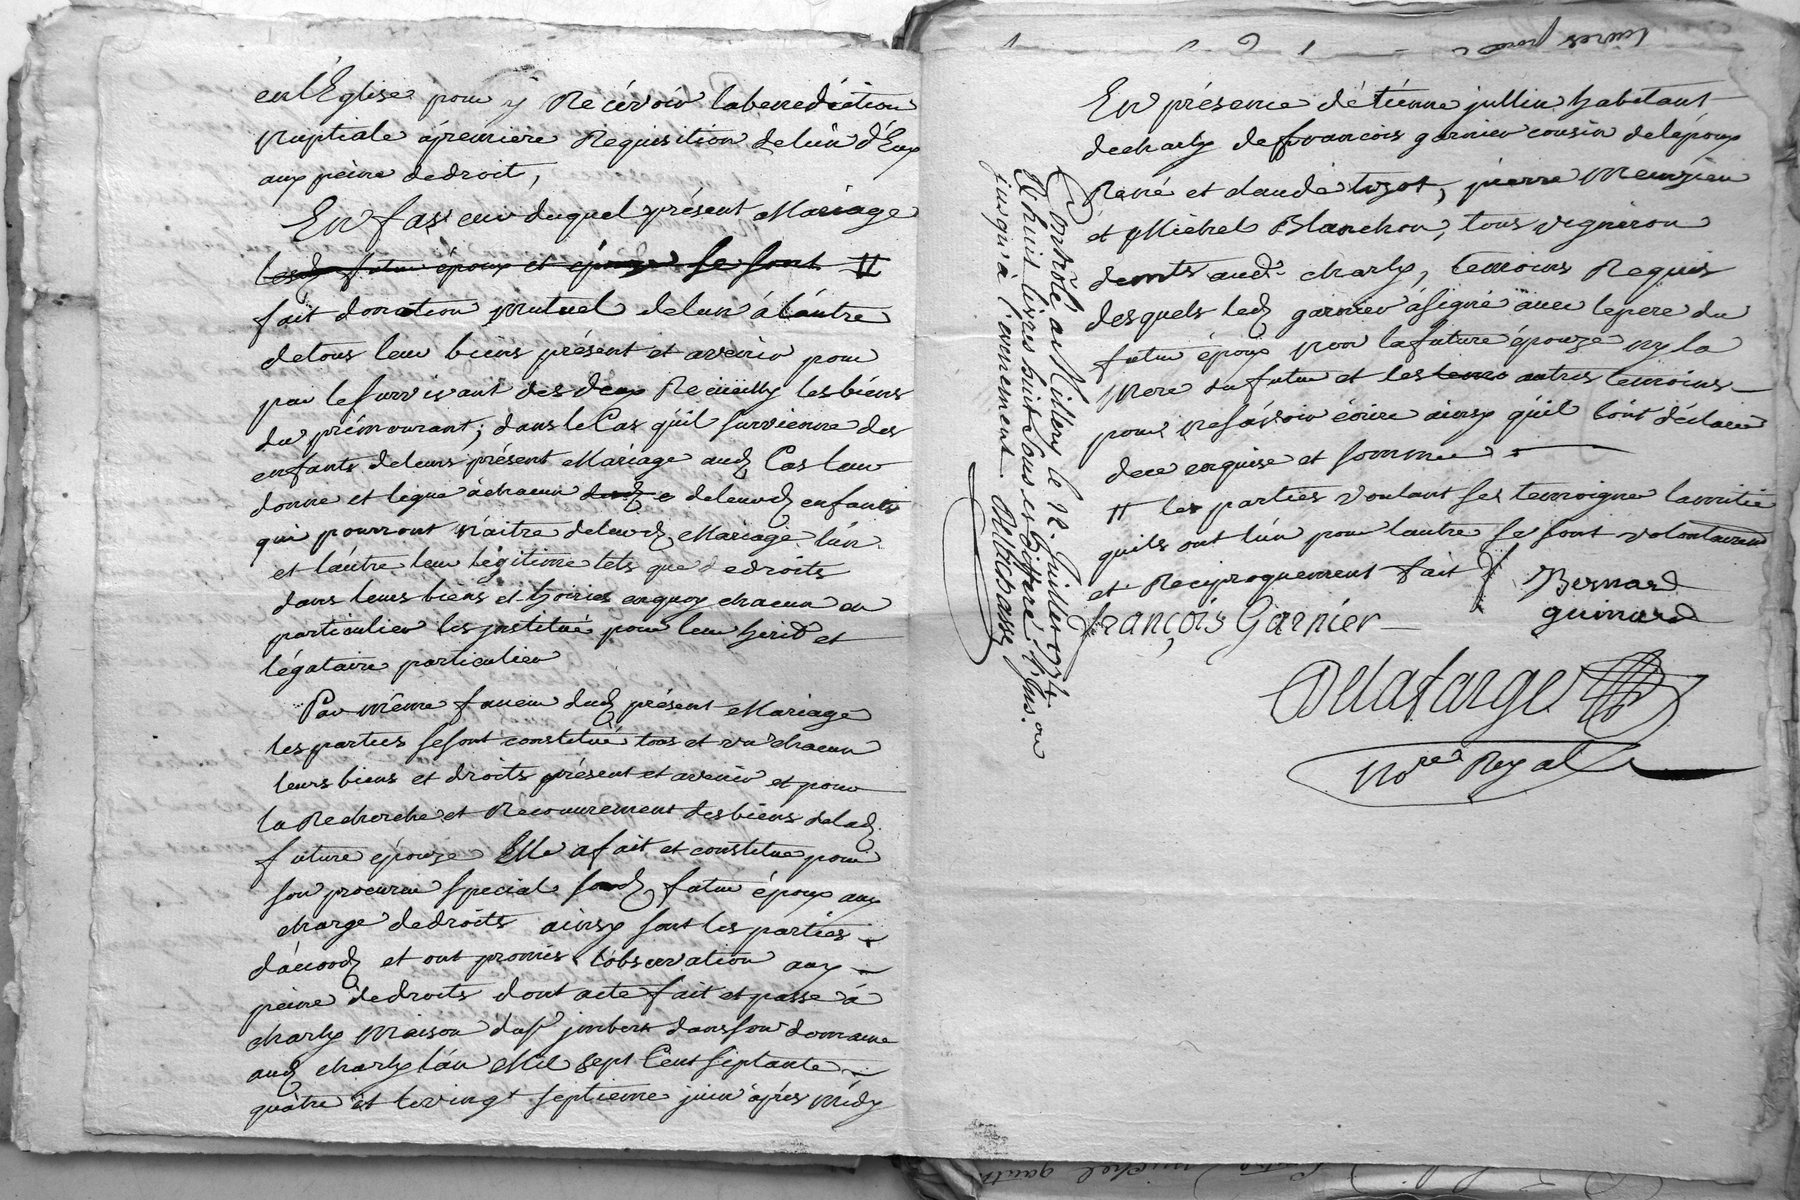 en l'Eglise pour y Recévoir la benediction
nuptiale a premiere Requisition de l'ún d'Eux
aux peine de droit,
En faveur duquel présent Mariage
lesd. futur époux et épouze se sont #
fait donation mutuel de lun á láutre
de tous leur biens présent et avenir pour
par le survivant des deux Recüeilly les biens
du prémourant; dans le Cas qu'il survienne des
enfants de leurs présent Mariage aud. Cas leur
donne et legue à chacun de leurd. enfants
qui pourront n'aitre de leurd. Mariage l'ún
et l'áutre leur légitime tels que de droits
dans leurs biens et hoiries en quoy chacun en
particulier les jnstitué pour leur herid et
légataire particulier
Par même faveur dud. présent Mariage
les parties se sont constitué tous et un chacun
leurs biens et droits présent et avenir et pour
la Recherche et Recouvrement des biens de lad.
future épouze Elle a fait et constitue pour
son procureur special sond. futur époux aux
charge de droits ainsy sont les parties
d'áccord et ont promis l'observation aux
peine de droits dont acte fait et passé á
charly maison du sr jmbert dans son domaine
aud. charly l'án Mil sept Cent septante
quâtre et le vingt septieme juin áprés midy
En présence d'étienne jullin habitant
de charly de francois garnier cousin de l'époux
René et claude tizot, pierre
et Michel Blanchon, tous vigneron
demts aud. charly, temoins Requis
desquels led. garnier á signé avec le pere du
futur époux non la future épouze ny la
Mere du futur et les autres temoins
pour ne sávoir écrire ainsy qu'il l'ont déclaré
de ce enquise et sommée
# les parties voulant se temoigner lamitié
quils ont lún pour lautre se sont volontairemt
et Réciproquement fait
Bernard
guinard
françois Garnier
Delafarge
Nore Royal
Contrôlé a Millery le 12. Juillet 1774
huit livres huit sous et differé l'Ins. on
jusqu'à l'evenement.